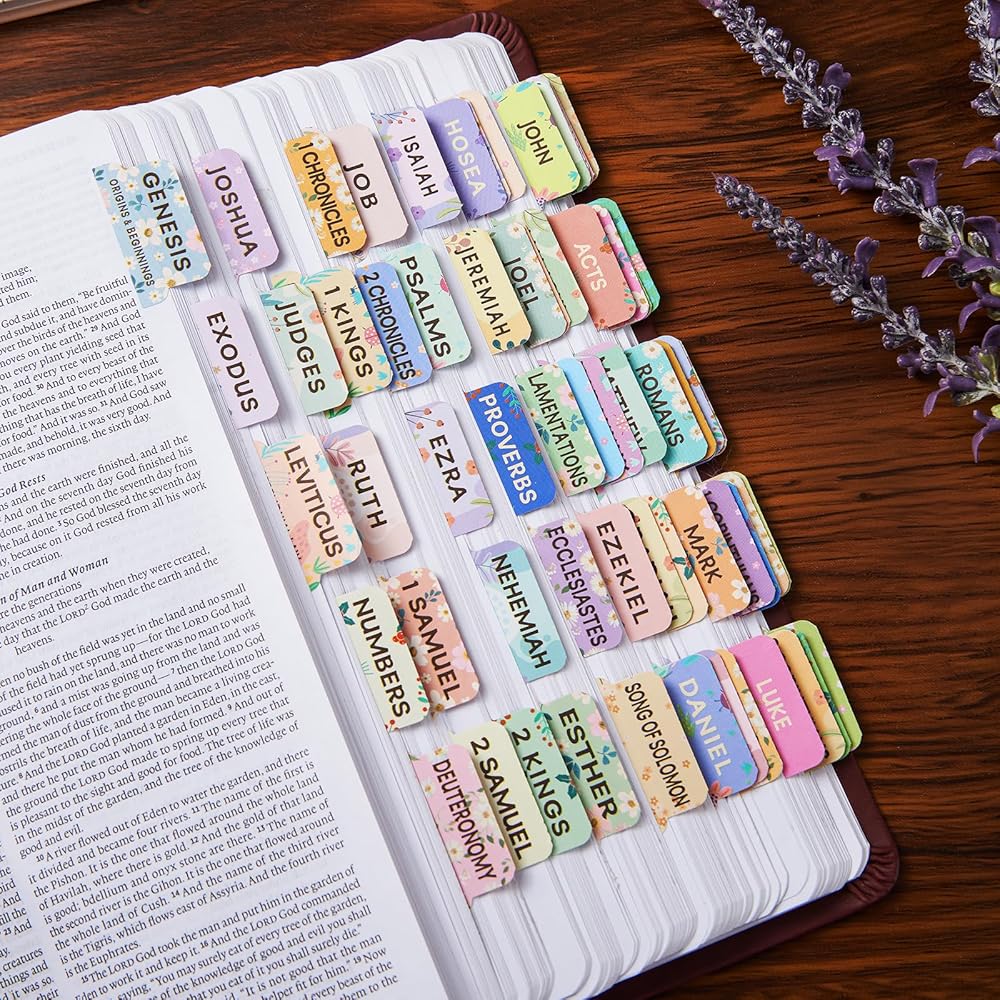 GENESIS
ORIGINS & BEGINNINGS
JOSHUA
1 CHRONICLES
JOB
ISAIAH
HOSEA
JOHN
EXODUS
JUDGES
1 KINGS
2 CHRONICLES
PSALMS
JEREMIAH
JOEL
ACTS
LEVITICUS
RUTH
EZRA
PROVERBS
LAMENTATIONS
MATTHEW
ROMANS
NUMBERS
1 SAMUEL
NEHEMIAH
ECCLESIASTES
EZEKIEL
MARK
DEUTERONOMY
2 SAMUEL
2 KINGS
ESTHER
SONG OF SOLOMON
DANIEL
LUKE
image,
ed him;
them.
God said to them, "Be fruitful
and subdue it, and have domin-
over the birds of the heavens and
moves on the earth." 29 And God
you every plant yielding seed that
th, and every tree with seed in its
for food. 30 And to every beast of
the heavens and to everything that
has the breath of life, I have
for food." And it was so. 31 And God saw
made, and behold, it was very good. And
there was morning, the sixth day.
God Rests
and the earth were finished, and all the
And on the seventh day God finished his
done, and he rested on the seventh day
he had done. 3 So God blessed the seventh day
because on it God rested from all his work
ne in creation.
n of Man and Woman
re the generations
eavens and the earth when they were created,
day that the LORD God made the earth and the
heavens.
no bush of the field was yet in the land and no small
of the field had yet sprung up—for the LORD God had
used it to rain on the land, and there was no man to work
ound, 6 and a mist was going up from the land and was
ering the whole face of the ground— 7 then the LORD God
med the man of dust from the ground and breathed into his
ostrils the breath of life, and the man became a living crea-
ure. 8 And the LORD God planted a garden in Eden, in the east,
and there he put the man whom he had formed. 9 And out of
the ground the LORD God made to spring up every tree that
is pleasant to the sight and good for food. The tree of life was
in the midst of the garden, and the tree of the knowledge of
good and evil.
10 A river flowed out of Eden to water the garden, and there
it divided and became four rivers. 11 The name of the first is
the Pishon. It is the one that flowed around the whole land
of Havilah, where there is gold. 12 And the gold of that land
is good; bdellium and onyx stone are there. 13 The name of the
second river is the Gihon. It is the one that flowed around
the whole land of Cush. 14 And the name of the third river
is the Tigris, which flows east of Assyria. And the fourth river
is the Euphrates.
15 The LORD God took the man and put him in the garden of
Eden to work it and keep it. 16 And the LORD God commanded
the man, saying, "You may surely eat of every tree of the garden,
but of the tree of the knowledge of good and evil you shall
not eat, for in the day that you eat of it you shall surely die."
18 Then the LORD God said, "It is not good that the man
should be alone; I will make him a helper fit for him." 19 Now